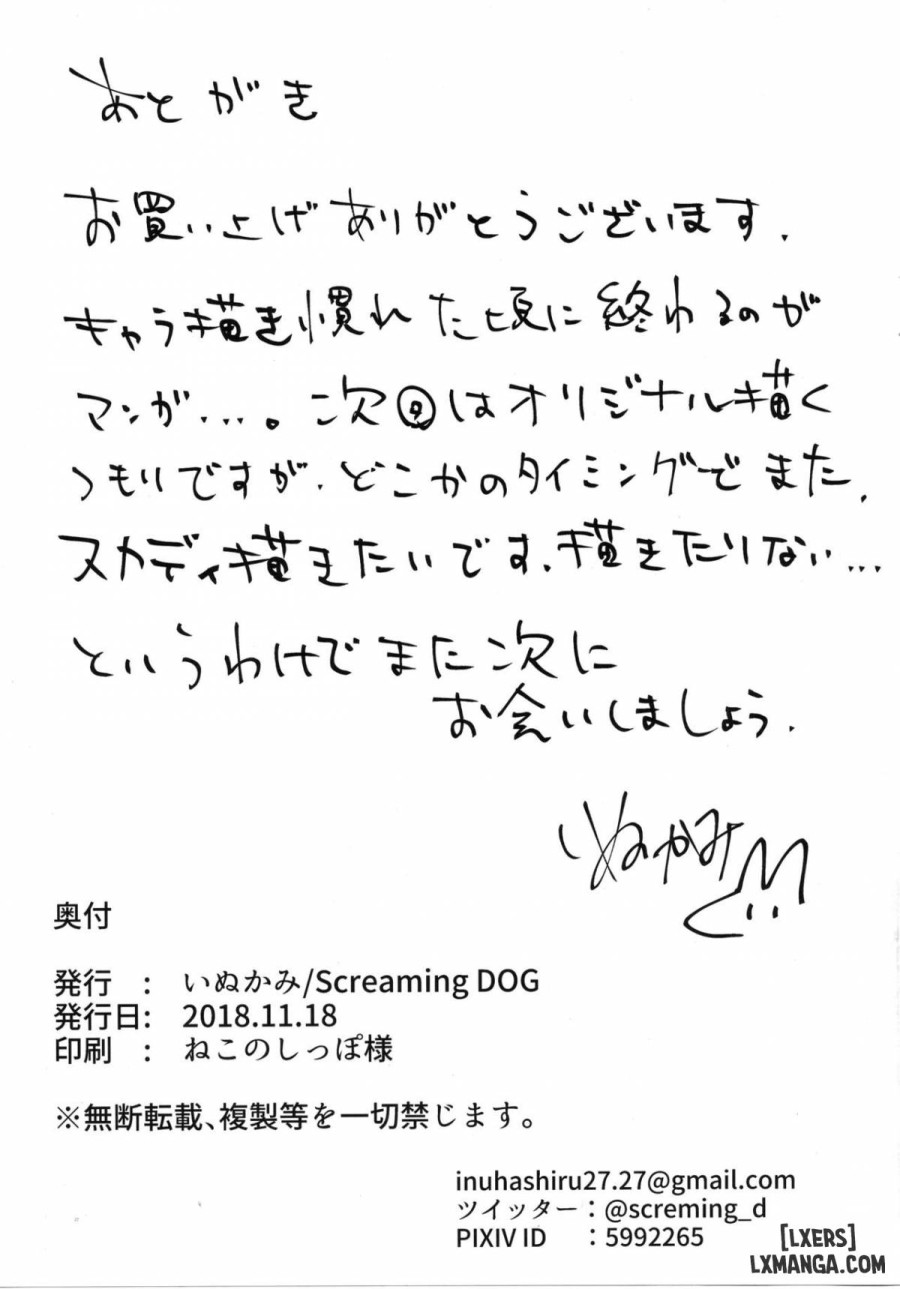 あとがき
お買い上げありがとうございます.
キャラ描き慣れた頃に終わるのが
マンガ...。次回はオリジナル描く
つもりですが、どこかのタイミングでまた、
スカディ描きたいです、描きたりない...
というわけでまた次に
お会いしましょう.
いぬかみ
奥付
発行 : いぬかみ/Screaming DOG
発行日: 2018.11.18
印刷 : ねこのしっぽ様
※無断転載、複製等を一切禁じます。
inuhashiru27.27@gmail.com
ツイッター:@screming_d
PIXIV ID :5992265
[LXERS]
LXMANGA.COM